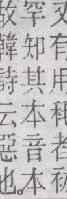 又有用
者
罕知其本音本
故韓詩云惡也。